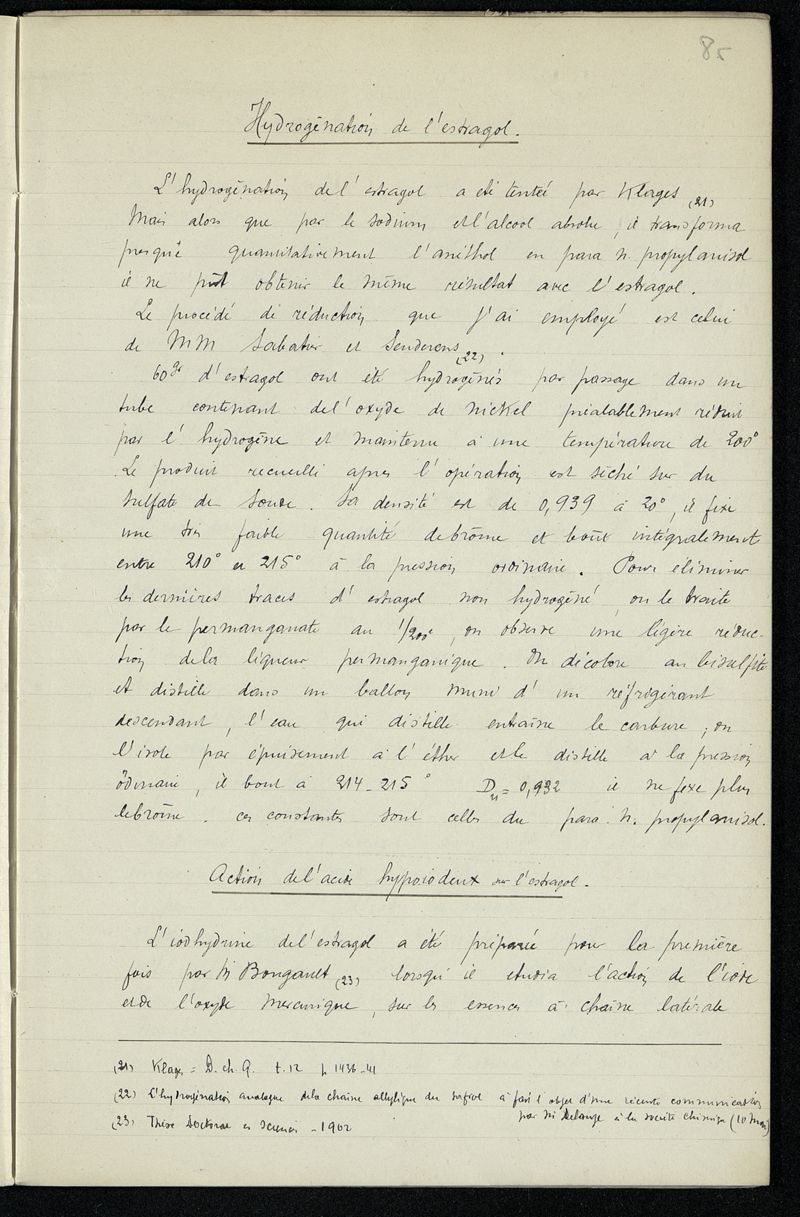 85
Hydrogénation de l'estragol.
L'hydrogénation de l'estragol a été tentée par Klages (21)
Mais alors que par le sodium et l'alcool absolu, il transforma
presque quantitativement l'anéthol en para n. propylanisol
il ne pût obtenir le même résultat avec l'estragol.
Le procédé de réduction que j'ai employé est celui
de MM Sabatier et Senderens (22).
60gr d'estragol ont été hydrogénés par passage dans un
tube contenant de l'oxyde de nickel préalablement réduit
par l'hydrogène et maintenu à une température de 200°
Le produit recueilli après l'opération est séché sur du
sulfate de soude. Sa densité est de 0,939 à 20°, il fixe
une très faible quantité de brôme et bout intégralement
entre 210° et 215° à la pression ordinaire. Pour éliminer
les dernières traces d'estragol non hydrogéné, on le traite
par le permanganate au 1/200e, on observe une légère réduc-
tion de la liqueur permanganique. On décolore au bisulfite
et distille dans un ballon muni d'un réfrigérant
descendant, l'eau qui distille entraîne le carbure, on
l'isole par épuisement à l'éther et le distille à la pression
ordinaire, il bout à 214-215° D = 0,932 il ne fixe plus
le brôme. ces constantes sont celles du para n. propylanisol.
Action de l'acide hypoiodeux sur l'estragol.
L'iodhydrine de l'estragol a été préparée pour la première
fois par M Bougault (23) lorsqu'il étudia l'action de l'iode
et de l'oxyde mercurique, sur les essences à chaîne latérale
(21) Klages = D. ch. G. t. 12 p 1436-41
(22) L'hydrogénation analogue de la chaîne allylique du safrol a fait l'objet d'une récente communication
par M Delange à la société chimique (10 Mai)
(23) Thèse Doctorat es Sciences - 1902